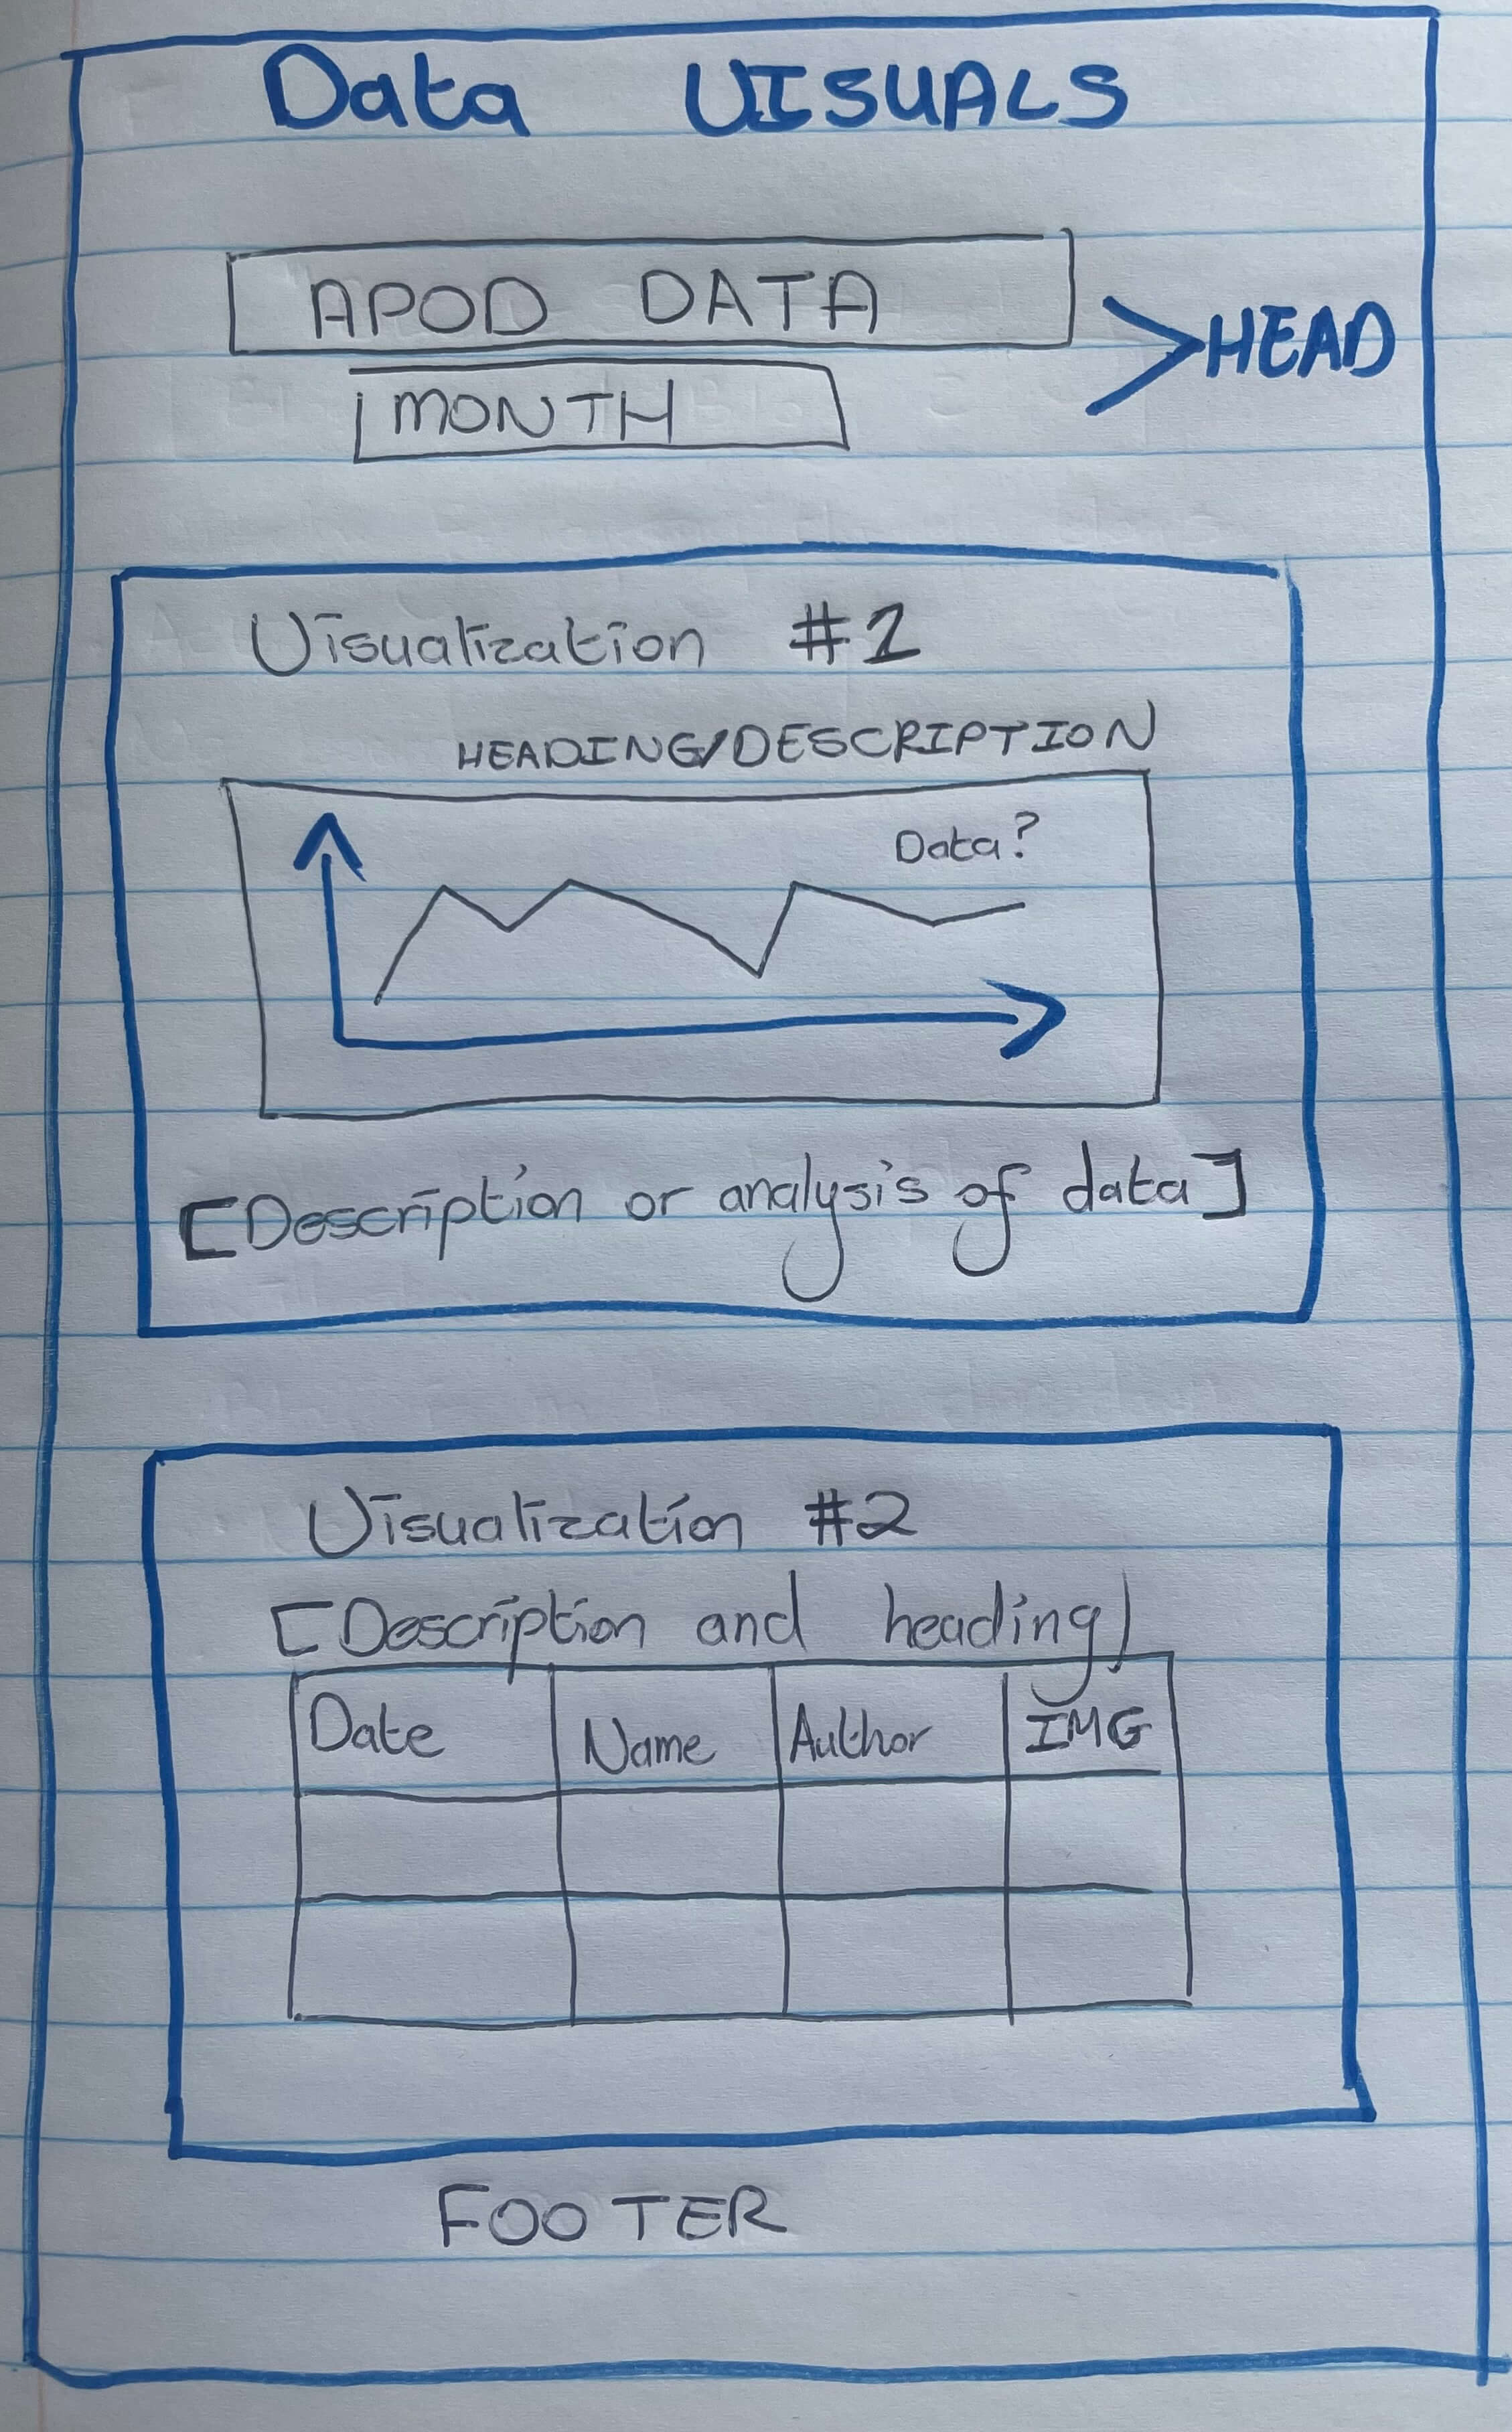 Data VISUALS
APOD DATA
MONTH
HEAD
Visualization #1
HEADING/DESCRIPTION
Data?
[Description or analysis of data]
Visualization #2
[Description and heading]
Date Name Author IMG
FOOTER